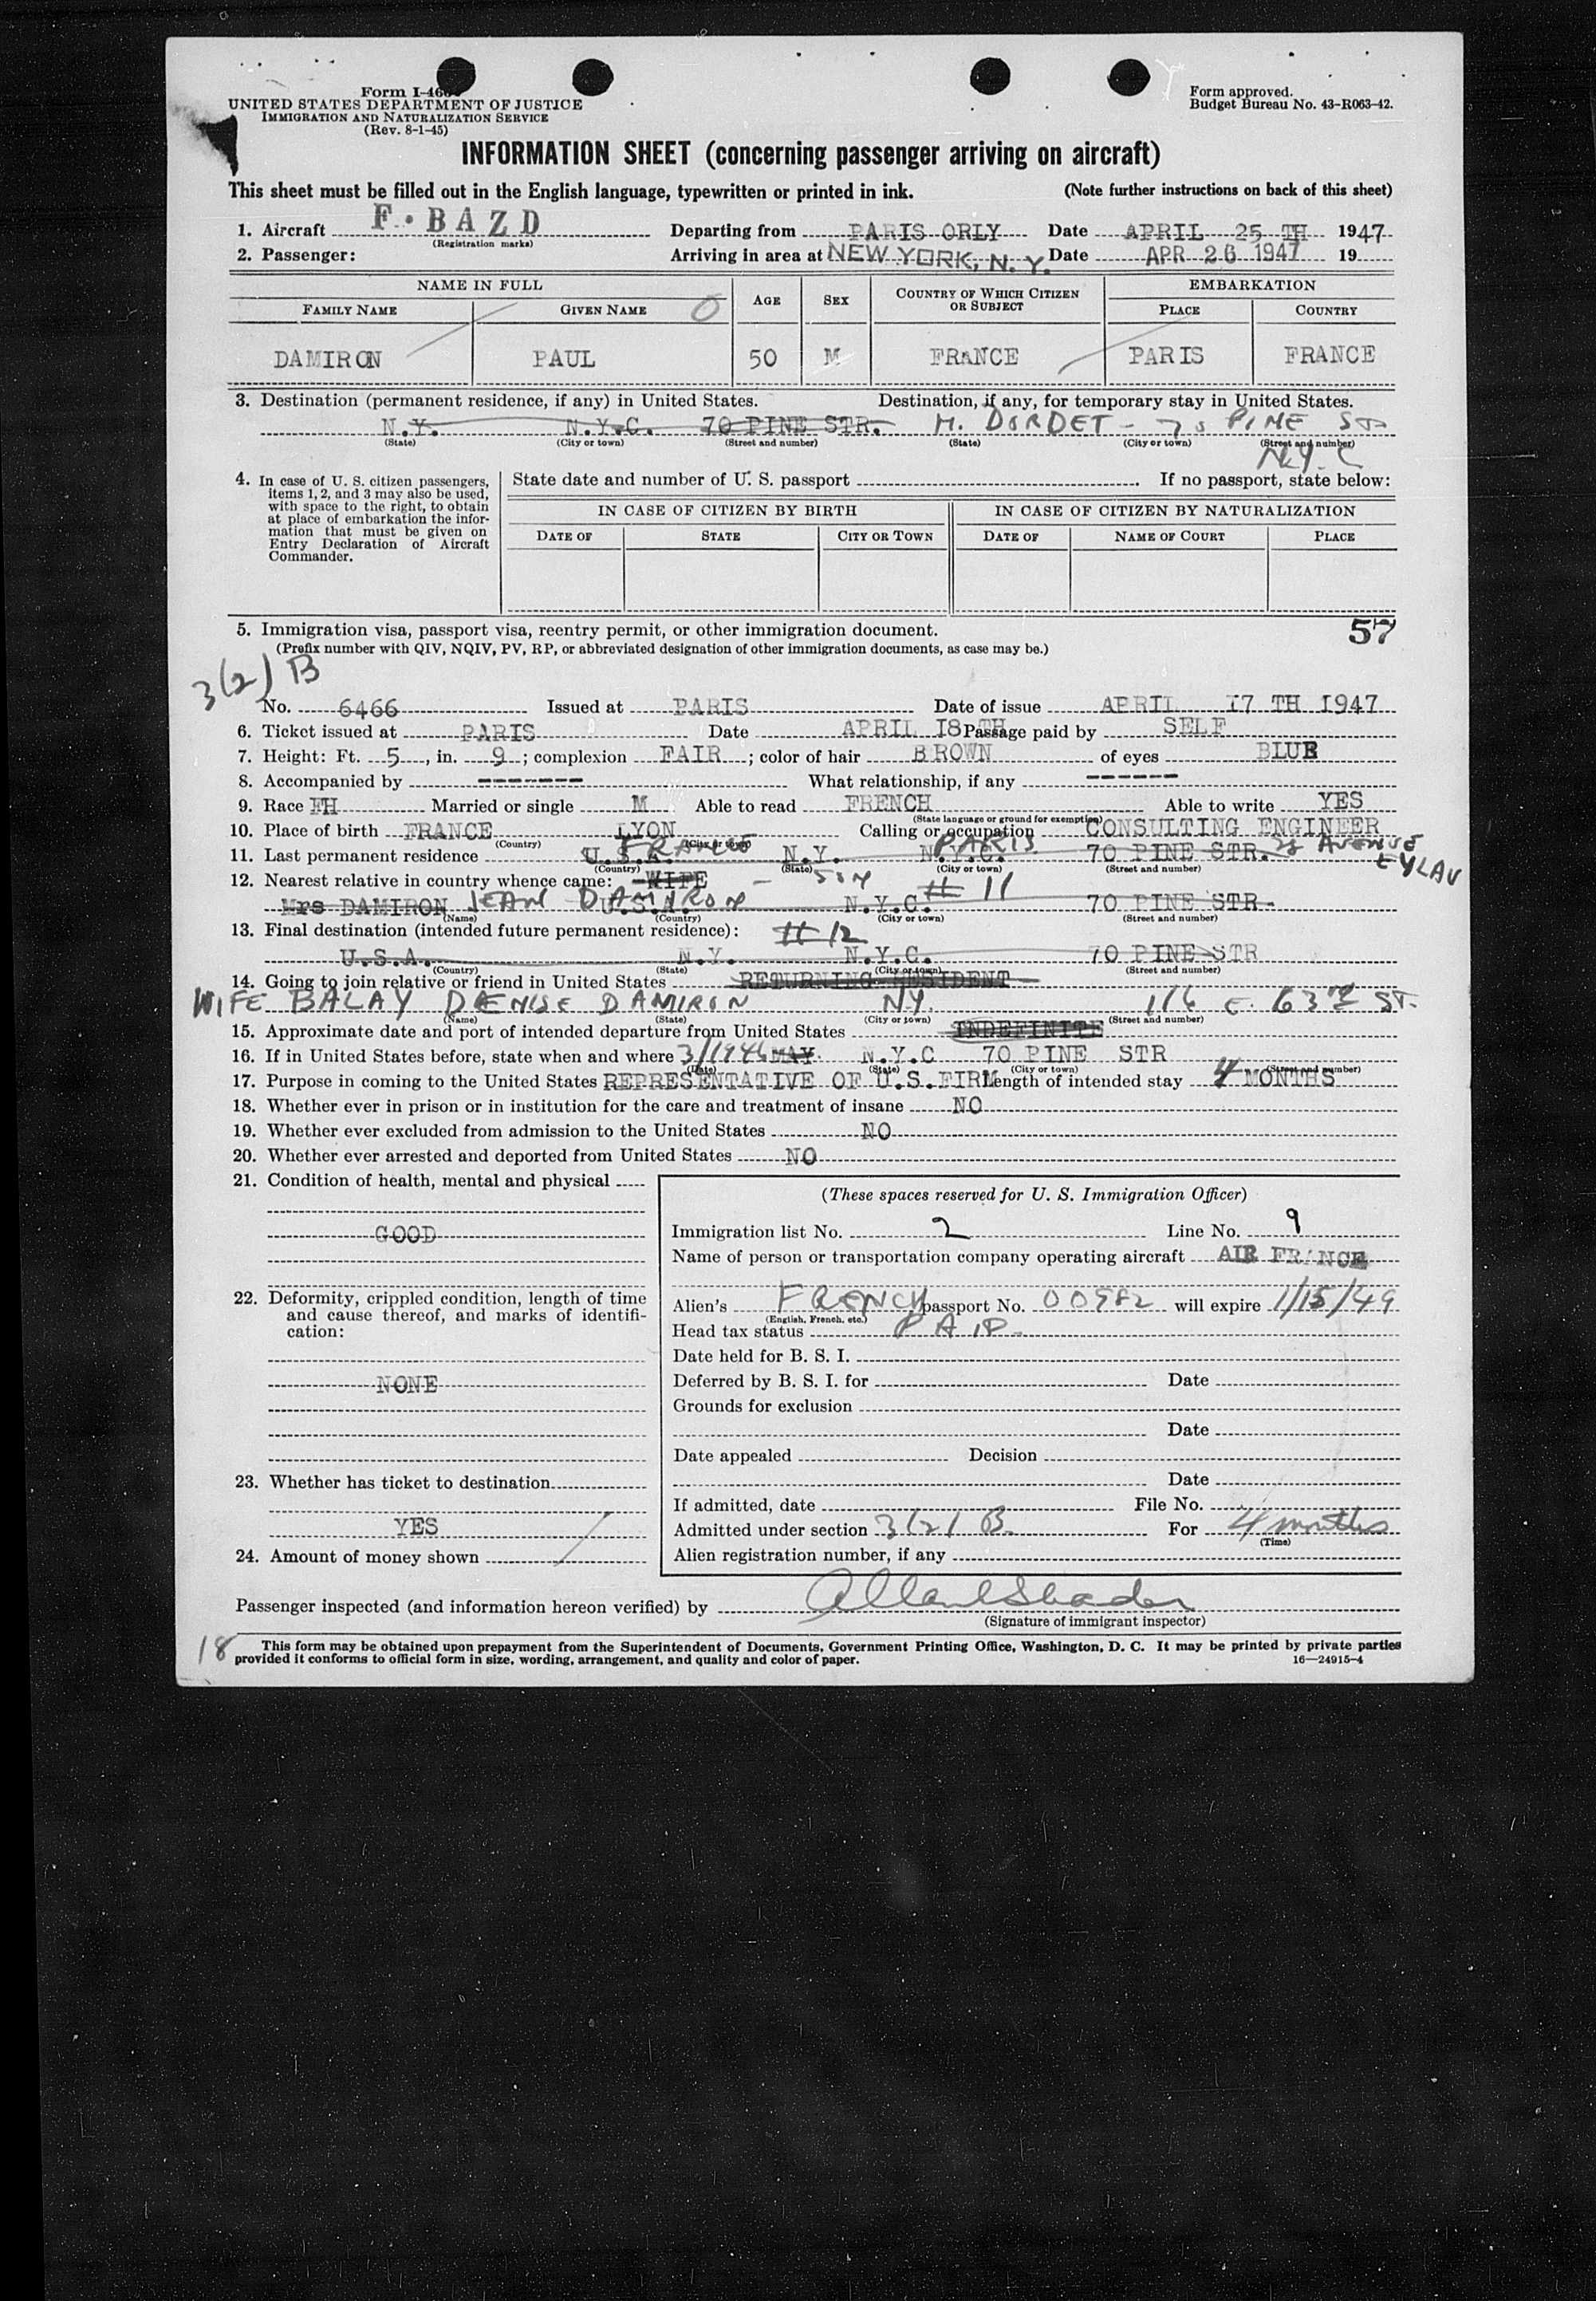 Form I-466
UNITED STATES DEPARTMENT OF JUSTICE
IMMIGRATION AND NATURALIZATION SERVICE
(Rev. 8-1-45)
Form approved.
Budget Bureau No. 43-R063-42.
INFORMATION SHEET (concerning passenger arriving on aircraft)
This sheet must be filled out in the English language, typewritten or printed in ink. (Note further instructions on back of this sheet)
1. Aircraft F·BAZD Departing from PARIS ORLY Date APRIL 25 TH 1947
(Registration marks)
2. Passenger: Arriving in area at NEW YORK, N. Y. Date APR 26 1947 19
NAME IN FULL AGE SEX COUNTRY OF WHICH CITIZEN OR SUBJECT EMBARKATION
FAMILY NAME GIVEN NAME O PLACE COUNTRY
DAMIRON PAUL 50 M FRANCE PARIS FRANCE
3. Destination (permanent residence, if any) in United States. Destination, if any, for temporary stay in United States.
N.Y. N.Y.C. 70 PINE STR. M. DORDET - 70 PINE ST
(State) (City or town) (Street and number) (State) (City or town) (Street and number)
N.Y.C
4. In case of U. S. citizen passengers, items 1, 2, and 3 may also be used, with space to the right, to obtain at place of embarkation the information that must be given on Entry Declaration of Aircraft Commander.
State date and number of U. S. passport If no passport, state below:
IN CASE OF CITIZEN BY BIRTH IN CASE OF CITIZEN BY NATURALIZATION
DATE OF STATE CITY OR TOWN DATE OF NAME OF COURT PLACE
5. Immigration visa, passport visa, reentry permit, or other immigration document. 57
(Prefix number with QIV, NQIV, PV, RP, or abbreviated designation of other immigration documents, as case may be.)
3(2) B
No. 6466 Issued at PARIS Date of issue APRIL 17 TH 1947
6. Ticket issued at PARIS Date APRIL 18 TH Passage paid by SELF
7. Height: Ft. 5, in. 9; complexion FAIR; color of hair BROWN of eyes BLUE
8. Accompanied by ------- What relationship, if any ------
9. Race FH Married or single M Able to read FRENCH Able to write YES
(State language or ground for exemption)
10. Place of birth FRANCE LYON Calling or occupation CONSULTING ENGINEER
(Country) (City or town)
FRANCE PARIS AVENUE
11. Last permanent residence U.S.A. N.Y. N.Y.C. 70 PINE STR. EYLAU
(Country) (State) (City or town) (Street and number)
12. Nearest relative in country whence came: WIFE - SON # 11
Mrs DAMIRON JEAN DAMIRON U.S.A. N.Y.C. 70 PINE STR.
(Name) (Country) (City or town) (Street and number)
13. Final destination (intended future permanent residence): # 12
U.S.A. N.Y. N.Y.C. 70 PINE STR
(Country) (State) (City or town) (Street and number)
14. Going to join relative or friend in United States RETURNING RESIDENT
WIFE BALAY DENISE DAMIRON N.Y. 116 E. 63RD ST.
(Name) (State) (City or town) (Street and number)
15. Approximate date and port of intended departure from United States INDEFINITE
16. If in United States before, state when and where 3/1946 MAY N.Y.C 70 PINE STR
(Date) (State) (City or town) (Street and number)
17. Purpose in coming to the United States REPRESENTATIVE OF U.S. FIRM Length of intended stay 4 MONTHS
18. Whether ever in prison or in institution for the care and treatment of insane NO
19. Whether ever excluded from admission to the United States NO
20. Whether ever arrested and deported from United States NO
21. Condition of health, mental and physical
GOOD
22. Deformity, crippled condition, length of time and cause thereof, and marks of identification:
NONE
23. Whether has ticket to destination
YES
24. Amount of money shown
(These spaces reserved for U. S. Immigration Officer)
Immigration list No. 2 Line No. 9
Name of person or transportation company operating aircraft AIR FRANCE
Alien's FRENCH passport No. 00982 will expire 1/15/49
(English, French, etc.)
Head tax status PAID
Date held for B. S. I.
Deferred by B. S. I. for Date
Grounds for exclusion
Date
Date appealed Decision
Date
If admitted, date File No.
Admitted under section 3(2) B For 4 months
(Time)
Alien registration number, if any
Passenger inspected (and information hereon verified) by
(Signature of immigrant inspector)
18
This form may be obtained upon prepayment from the Superintendent of Documents, Government Printing Office, Washington, D. C. It may be printed by private parties
provided it conforms to official form in size, wording, arrangement, and quality and color of paper. 16—24915-4